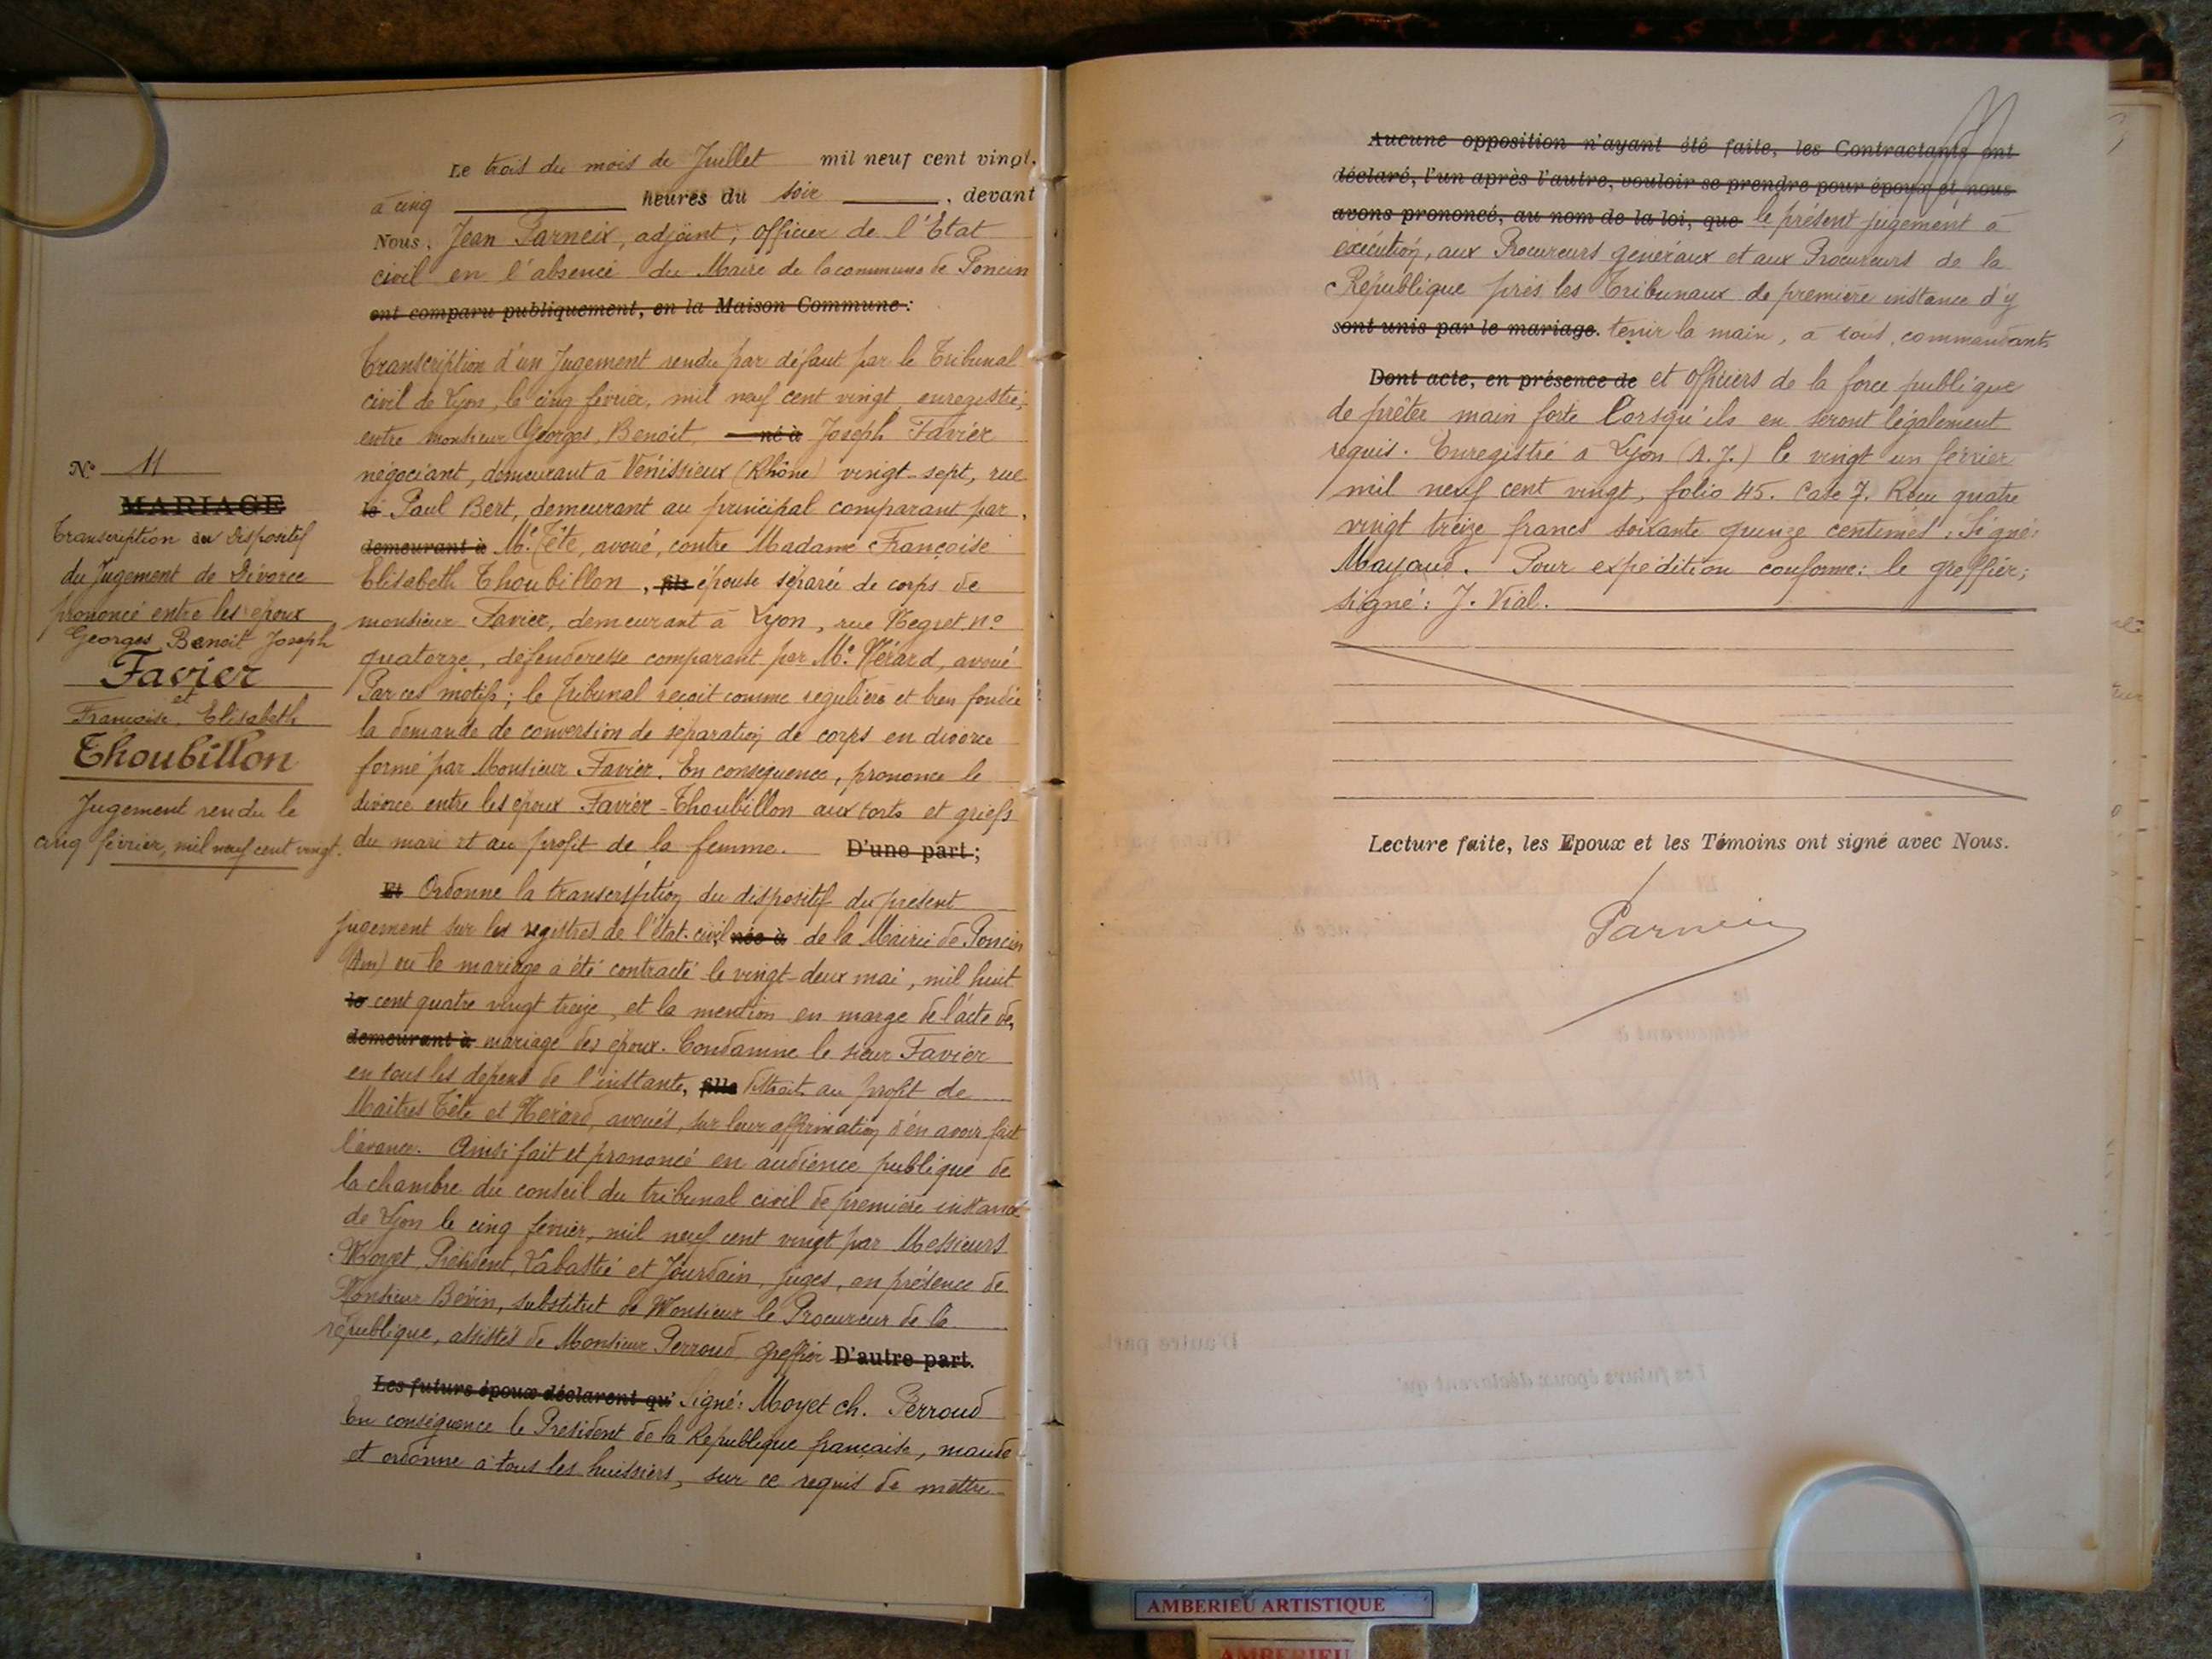 N° 11
MARIAGE
Transcription du dispositif
du Jugement de Divorce
prononcé entre les époux
Georges Benoit Joseph
Favier
et
Françoise, Elisabeth
Thoubillon
Jugement rendu le
cinq février, mil neuf cent vingt.
Le trois du mois de Juillet mil neuf cent vingt,
à cinq heures du soir , devant
Nous, Jean Parneix, adjoint, officier de l'Etat
civil en l'absence du Maire de la commune de Poncin
ont comparu publiquement, en la Maison Commune :
Transcription d'un Jugement rendu par défaut par le Tribunal
civil de Lyon, le cinq février, mil neuf cent vingt enregistré,
entre monsieur Georges, Benoit, né à Joseph Favier
négociant, demeurant à Vénissieux (Rhône) vingt-sept, rue
le Paul Bert, demeurant au principal comparant par,
demeurant à Me Tête, avoué, contre Madame Françoise
Elisabeth Thoubillon, fils épouse séparée de corps de
monsieur Favier, demeurant à Lyon, rue Negret n°
quatorze, défenderesse comparant par Me Hérard, avoué
Par ces motifs; le Tribunal reçoit comme régulière et bien fondée
la demande de conversion de séparation de corps en divorce
formé par Monsieur Favier. En conséquence, prononce le
divorce entre les époux Favier-Thoubillon aux torts et griefs
du mari et au profit de la femme. D'une part ;
Et Ordonne la transcription du dispositif du présent
jugement sur les registres de l'état-civil née à de la Mairie de Poncin
(Ain) ou le mariage a été contracté le vingt-deux mai, mil huit
le cent quatre vingt treize, et la mention en marge de l'acte de,
demeurant à mariage des époux. Condamne le sieur Favier
en tous les dépens de l'instante, fille distraits au profit de
Maitres Tête et Hérard, avoués, sur leur affirmation d'en avoir fait
l'avance. Ainsi fait et prononcé en audience publique de
la chambre du conseil du tribunal civil de première instance
de Lyon le cinq février, mil neuf cent vingt par Messieurs
Moyet, Président, Labastié et Jourdain, juges, en présence de
Monsieur Bévin, substitut de Monsieur le Procureur de la
république, assistés de Monsieur Perroud, greffier D'autre part.
Les futurs époux déclarent qu' Signé: Moyet ch. Perroud
En conséquence le Président de la République française, mande
et ordonne à tous les huissiers, sur ce requis de mettre
Aucune opposition n'ayant été faite, les Contractants ont
déclaré, l'un après l'autre, vouloir se prendre pour époux et nous
avons prononcé, au nom de la loi, que le présent jugement à
exécution, aux Procureurs généraux et aux Procureurs de la
République près les Tribunaux de première instance d'y
sont unis par le mariage. tenir la main, à tous, commandants
Dont acte, en présence de et officiers de la force publique
de prêter main forte lorsqu'ils en seront légalement
requis. Enregistré à Lyon (A.J.) le vingt un février
mil neuf cent vingt, folio 45. Case 7. Reçu quatre
vingt treize francs soixante quinze centimes. Signé:
Mayaud. Pour expédition conforme: le greffier;
signé: J. Vial.
Lecture faite, les Epoux et les Témoins ont signé avec Nous.
Parneix
AMBERIEU ARTISTIQUE
AMBERIEU